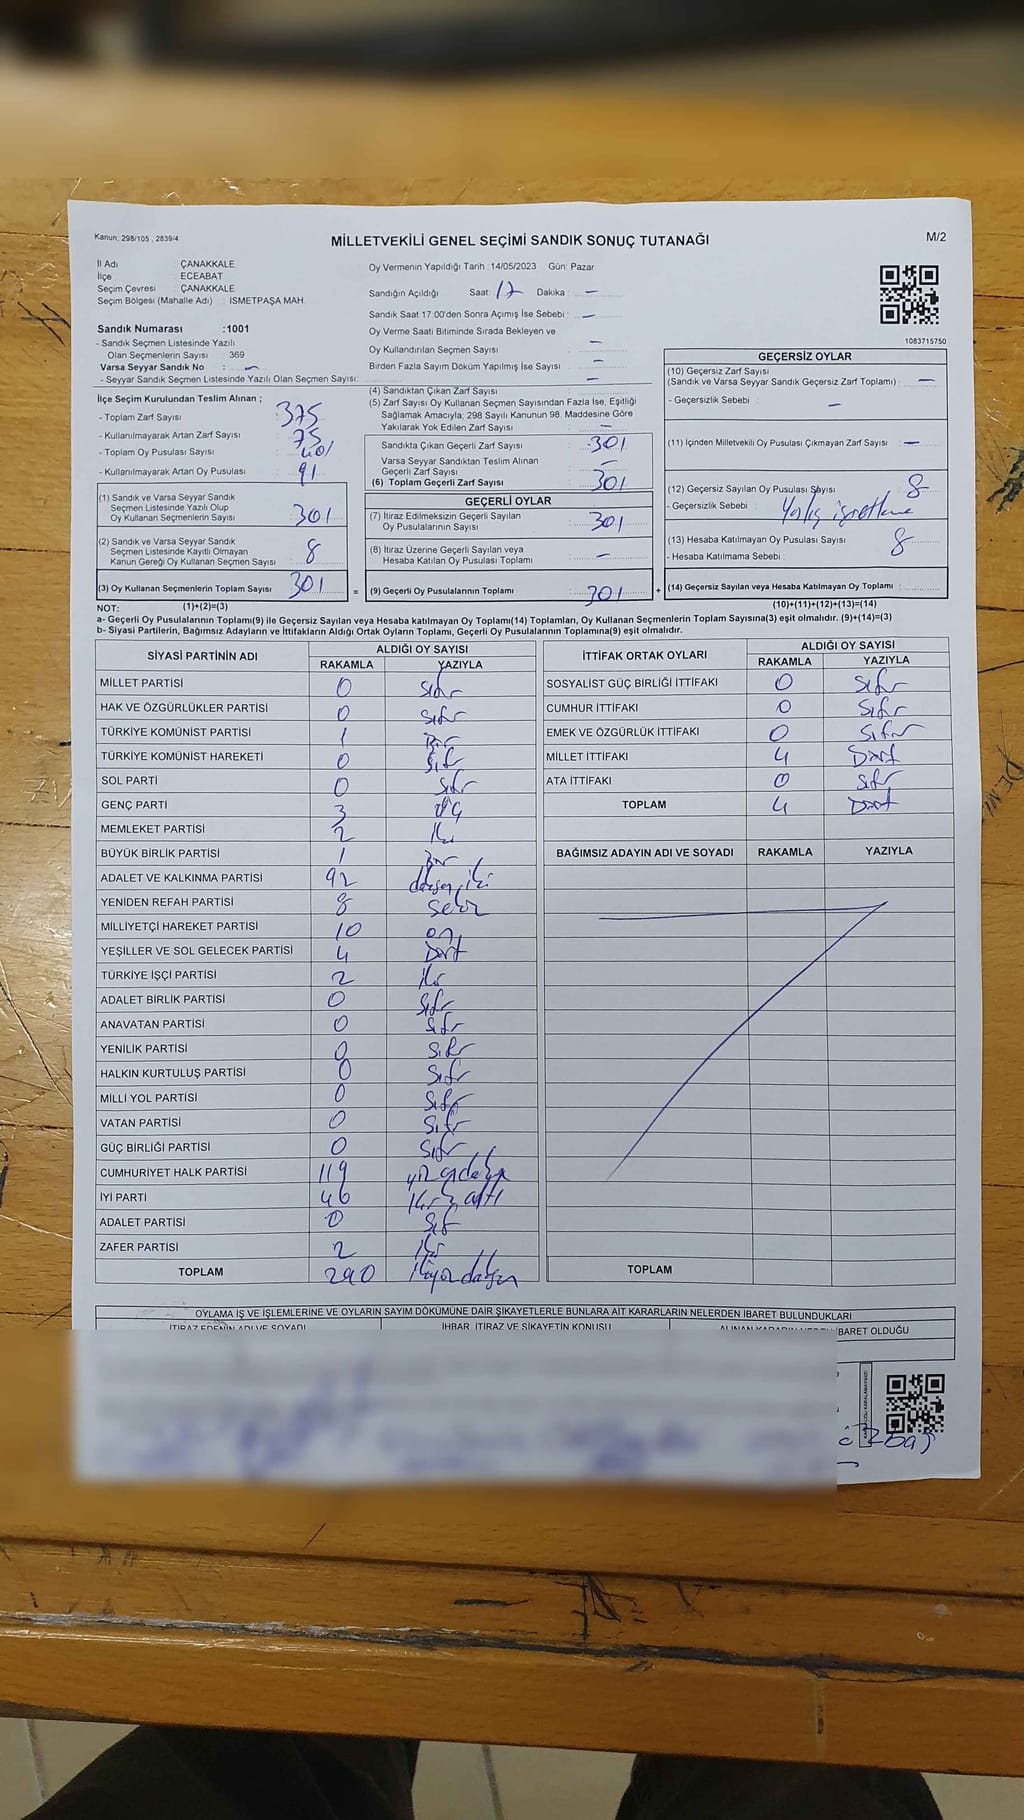 Kanun: 298/105 , 2839/4
MİLLETVEKİLİ GENEL SEÇİMİ SANDIK SONUÇ TUTANAĞI
M/2
İl Adı ÇANAKKALE
İlçe ECEABAT
Seçim Çevresi : ÇANAKKALE
Seçim Bölgesi (Mahalle Adı) : İSMETPAŞA MAH.
Sandık Numarası :1001
- Sandık Seçmen Listesinde Yazılı
Olan Seçmenlerin Sayısı : 369
Varsa Seyyar Sandık No : –
- Seyyar Sandık Seçmen Listesinde Yazılı Olan Seçmen Sayısı: –
Oy Vermenin Yapıldığı Tarih :14/05/2023 Gün: Pazar
Sandığın Açıldığı Saat: 17 Dakika : –
Sandık Saat 17:00'den Sonra Açımış İse Sebebi : –
Oy Verme Saati Bitiminde Sırada Bekleyen ve
Oy Kullandırılan Seçmen Sayısı : –
Birden Fazla Sayım Döküm Yapılmış İse Sayısı : –
1083715750
İlçe Seçim Kurulundan Teslim Alınan ;
- Toplam Zarf Sayısı : 375
- Kullanılmayarak Artan Zarf Sayısı : 75
- Toplam Oy Pusulası Sayısı : 401
- Kullanılmayarak Artan Oy Pusulası : 91
(1) Sandık ve Varsa Seyyar Sandık
Seçmen Listesinde Yazılı Olup
Oy Kullanan Seçmenlerin Sayısı : 301
(2) Sandık ve Varsa Seyyar Sandık
Seçmen Listesinde Kayıtlı Olmayan
Kanun Gereği Oy Kullanan Seçmen Sayısı : 8
(3) Oy Kullanan Seçmenlerin Toplam Sayısı : 301
(4) Sandıktan Çıkan Zarf Sayısı :
(5) Zarf Sayısı Oy Kullanan Seçmen Sayısından Fazla İse, Eşitliği
Sağlamak Amacıyla; 298 Sayılı Kanunun 98. Maddesine Göre
Yakılarak Yok Edilen Zarf Sayısı : –
Sandıkta Çıkan Geçerli Zarf Sayısı : 301
Varsa Seyyar Sandıktan Teslim Alınan
Geçerli Zarf Sayısı : –
(6) Toplam Geçerli Zarf Sayısı : 301
GEÇERLİ OYLAR
(7) İtiraz Edilmeksizin Geçerli Sayılan
Oy Pusulalarının Sayısı : 301
(8) İtiraz Üzerine Geçerli Sayılan veya
Hesaba Katılan Oy Pusulası Toplamı : –
= (9) Geçerli Oy Pusulalarının Toplamı : 301 +
GEÇERSİZ OYLAR
(10) Geçersiz Zarf Sayısı
(Sandık ve Varsa Seyyar Sandık Geçersiz Zarf Toplamı) : –
- Geçersizlik Sebebi : –
(11) İçinden Milletvekili Oy Pusulası Çıkmayan Zarf Sayısı : –
(12) Geçersiz Sayılan Oy Pusulası Sayısı : 8
- Geçersizlik Sebebi :
(13) Hesaba Katılmayan Oy Pusulası Sayısı : 8
- Hesaba Katılmama Sebebi :
(14) Geçersiz Sayılan veya Hesaba Katılmayan Oy Toplamı :
NOT: (1)+(2)=(3)
(10)+(11)+(12)+(13)=(14)
a- Geçerli Oy Pusulalarının Toplamı(9) ile Geçersiz Sayılan veya Hesaba katılmayan Oy Toplamı(14) Toplamları, Oy Kullanan Seçmenlerin Toplam Sayısına(3) eşit olmalıdır. (9)+(14)=(3)
b- Siyasi Partilerin, Bağımsız Adayların ve İttifakların Aldığı Ortak Oyların Toplamı, Geçerli Oy Pusulalarının Toplamına(9) eşit olmalıdır.
SİYASİ PARTİNİN ADI ALDIĞI OY SAYISI
RAKAMLA YAZIYLA
MİLLET PARTİSİ 0 sıfır
HAK VE ÖZGÜRLÜKLER PARTİSİ 0 sıfır
TÜRKİYE KOMÜNİST PARTİSİ 1 Bir
TÜRKİYE KOMÜNİST HAREKETİ 0 sıfır
SOL PARTİ 0 sıfır
GENÇ PARTİ 3 üç
MEMLEKET PARTİSİ 2 iki
BÜYÜK BİRLİK PARTİSİ 1 Bir
ADALET VE KALKINMA PARTİSİ 92 iki
YENİDEN REFAH PARTİSİ 8 sekiz
MİLLİYETÇİ HAREKET PARTİSİ 10 on
YEŞİLLER VE SOL GELECEK PARTİSİ 4 Dört
TÜRKİYE İŞÇİ PARTİSİ 2 iki
ADALET BİRLİK PARTİSİ 0 sıfır
ANAVATAN PARTİSİ 0 sıfır
YENİLİK PARTİSİ 0 sıfır
HALKIN KURTULUŞ PARTİSİ 0 sıfır
MİLLİ YOL PARTİSİ 0 sıfır
VATAN PARTİSİ 0 sıfır
GÜÇ BİRLİĞİ PARTİSİ 0 sıfır
CUMHURİYET HALK PARTİSİ 119
İYİ PARTİ 46 kırk altı
ADALET PARTİSİ 0 sıfır
ZAFER PARTİSİ 2 iki
TOPLAM 290
İTTİFAK ORTAK OYLARI ALDIĞI OY SAYISI
RAKAMLA YAZIYLA
SOSYALİST GÜÇ BİRLİĞİ İTTİFAKI 0 sıfır
CUMHUR İTTİFAKI 0 sıfır
EMEK VE ÖZGÜRLÜK İTTİFAKI 0 sıfır
MİLLET İTTİFAKI 4 Dört
ATA İTTİFAKI 0 sıfır
TOPLAM 4 Dört
BAĞIMSIZ ADAYIN ADI VE SOYADI RAKAMLA YAZIYLA
TOPLAM
OYLAMA İŞ VE İŞLEMLERİNE VE OYLARIN SAYIM DÖKÜMÜNE DAİR ŞİKAYETLERLE BUNLARA AİT KARARLARIN NELERDEN İBARET BULUNDUKLARI
İTİRAZ EDENİN ADI VE SOYADI İHBAR, İTİRAZ VE ŞİKAYETİN KONUSU ALINAN KARARIN NEDEN İBARET OLDUĞU